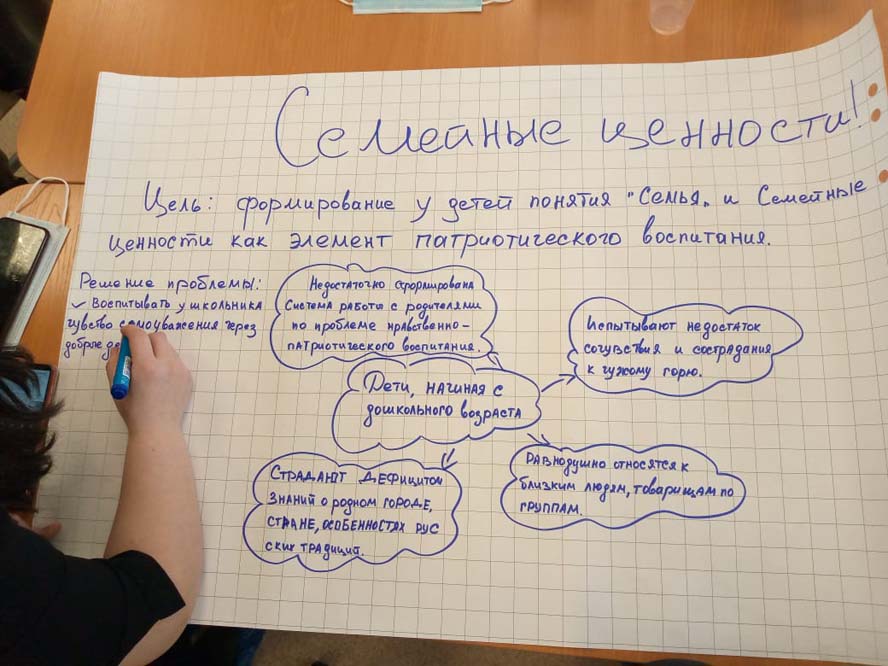 Семейные ценности!
Цель: формирование у детей понятия "Семья" и Семейные
ценности как элемент патриотического воспитания.
Решение проблемы:
✓ Воспитывать у школьника
чувство самоуважения через
доброе де
Недостаточно сформирована
система работы с родителями
по проблеме нравственно-
патриотического воспитания.
Испытывают недостаток
сочувствия и сострадания
к чужому горю.
Дети, начиная с
дошкольного возраста
Страдают дефицитом
знаний о родном городе,
стране, особенностях рус
ских традиций.
Равнодушно относятся к
близким людям, товарищам по
группам.